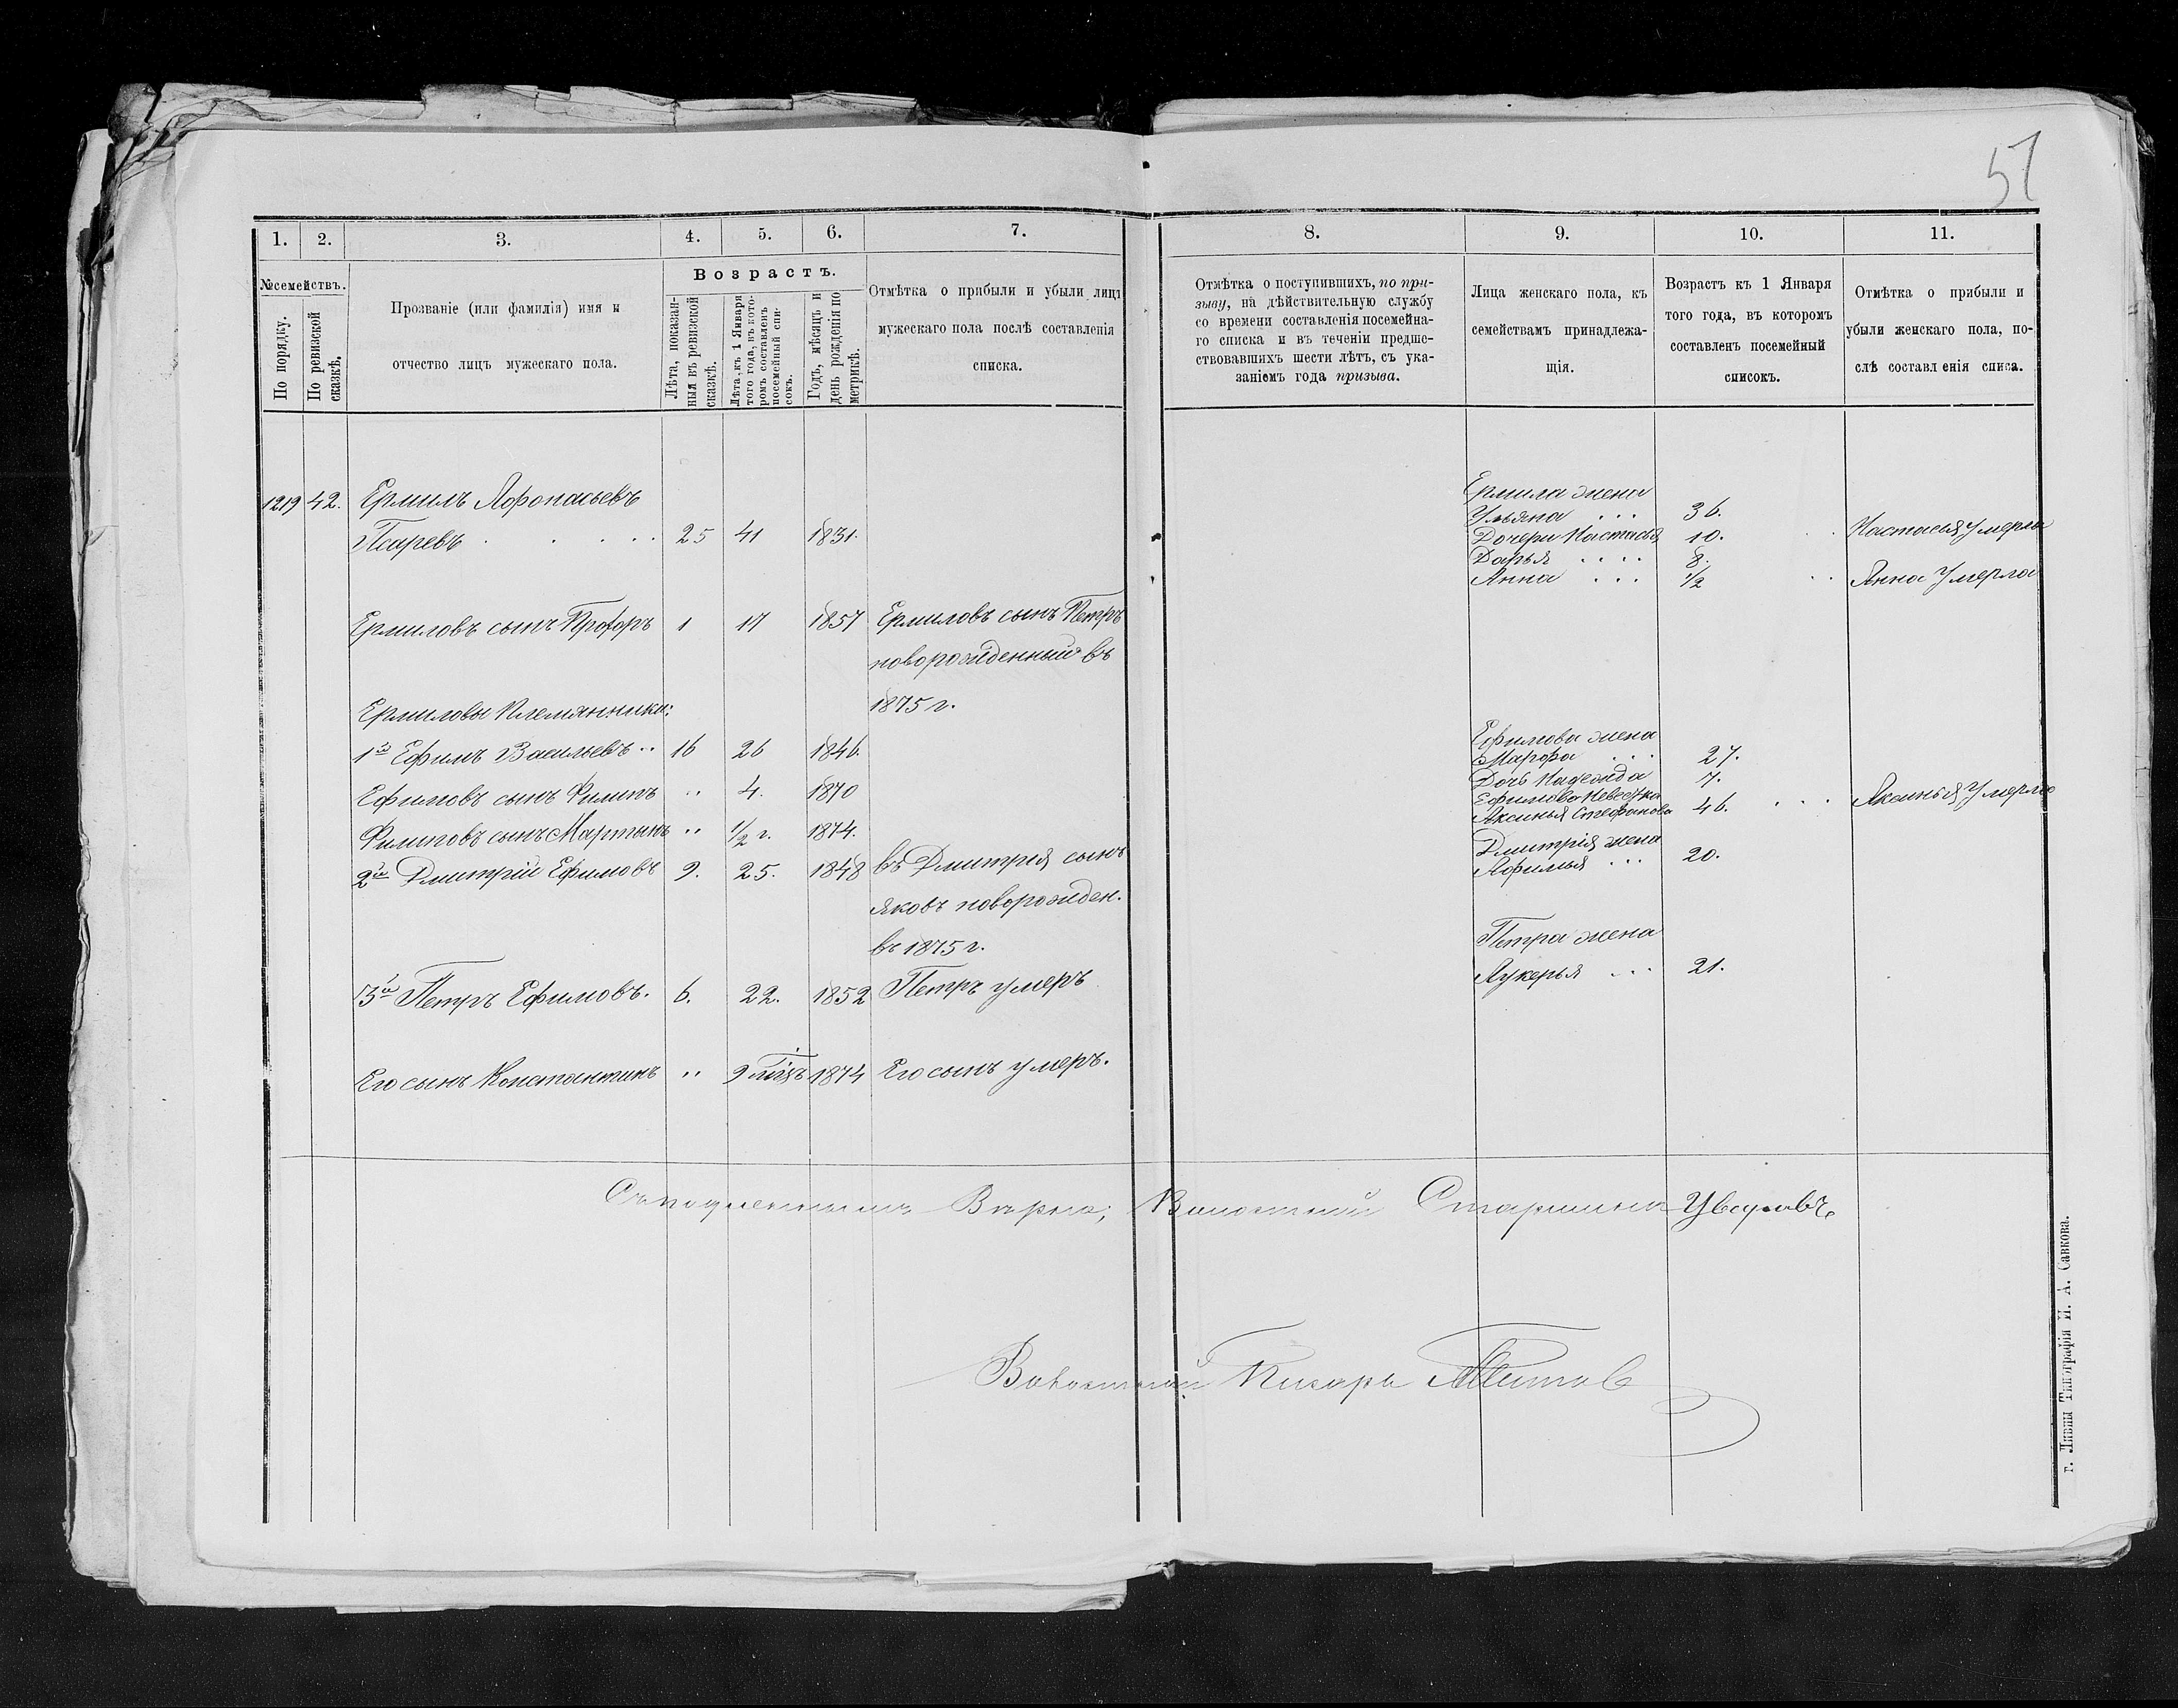 57
1. 2. 3. 4. 5. 6. 7. 8. 9. 10. 11.
№ семействъ.
По порядку.
По ревизской сказкѣ.
Прозваніе (или фамилія) имя и
отчество лицъ мужескаго пола.
Возрастъ.
Лѣта, показан-
ныя въ ревизской
сказкѣ.
Лѣта, къ 1 Января
того года, въ кото-
ромъ составленъ
посемейный спи-
сокъ.
Годъ, мѣсяцъ и
день рожденія по
метрикѣ.
Отмѣтка о прибыли и убыли лицъ
мужескаго пола послѣ составленія
списка.
Отмѣтка о поступившихъ, по при-
зыву, на дѣйствительную службу
со времени составленія посемейна-
го списка и въ теченіи предше-
ствовавшихъ шести лѣтъ, съ ука-
заніемъ года призыва.
Лица женскаго пола, къ
семействамъ принадлежа-
щія.
Возрастъ къ 1 Января
того года, въ которомъ
составленъ посемейный
списокъ.
Отмѣтка о прибыли и
убыли женскаго пола, по-
слѣ составленія списа.
1219 42. Ермилъ Афонасьевъ
Псаревъ 25 41 1831.
Ермиловъ сынъ Профоръ 1 17 1857 Ермиловъ сынъ Петръ
новорожденный въ
1875 г.
Ермиловы племянники:
1й Ефимъ Васильевъ 16 26 1846.
Ефимовъ сынъ Филипъ " 4. 1870
Филиповъ сынъ Мартынъ " 1/2 г. 1874.
2й Дмитрій Ефимовъ 9. 25. 1848 въ Дмитрія сынъ
Яковъ новорожден.
въ 1875 г.
3й Петръ Ефимовъ. 6. 22. 1852 Петръ умеръ
Его сынъ Константинъ " 9 мѣсяцъ 1874 Его сынъ умеръ.
Ермила жена
Ульяна 36.
Дочери Настасья 10. Настасья умерла
Дарья 8.
Анна 1/2 Анна умерла
Ефимова жена
Марфа 27.
Дочь Надежда 7.
Ефимова невестка
Аксинья Стефанова 46. Аксинья умерла
Дмитрія жена
Афимья 20.
Петра жена
Лукерья 21.
Съ подленнымъ Верно; Волостной Старшина
Волостной Писарь
г. Ливны Типографія И. А. Савкова.